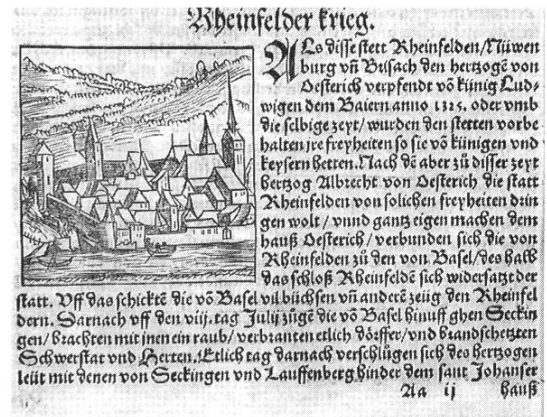 Rheinfelder krieg.
ALs disse stett Rheinfelden/Nüwen
burg vñ Brisach den hertzogẽ von
Oesterich verpfendt võ künig Lud-
wigen dem Baiern anno 1325. oder vmb
die selbige zeyt/ wurden den stetten vorbe
halten jre freyheiten so sie võ künigen vnd
keysern hetten. Nach dẽ aber zů disser zeyt
hertzog Albrecht von Oesterich die statt
Rheinfelden von solichen freyheiten drin
gen wolt/ vnnd gantz eigen machen dem
hauß Oesterich/ verbunden sich die von
Rheinfelden zů den von Basel/ des halb
das schloß Rheinfeldẽ sich widersatzt der
statt. Vff das schicktẽ die võ Basel vil büchsen vñ anderẽ zeüg den Rheinfel
dern. Darnach vff den viij. tag Julij zügẽ die võ Basel hinuff ghen Seckin
gen/ brachten mit jnen ein raub/ verbranten etlich dörffer/ vnd brandschetzten
Schwerstat vnd Herten. Etlich tag darnach verschlůgen sich des hertzogen
leüt mit denen von Seckingen vnd Lauffenberg hinder dem sant Johanser
Aa ij hauß